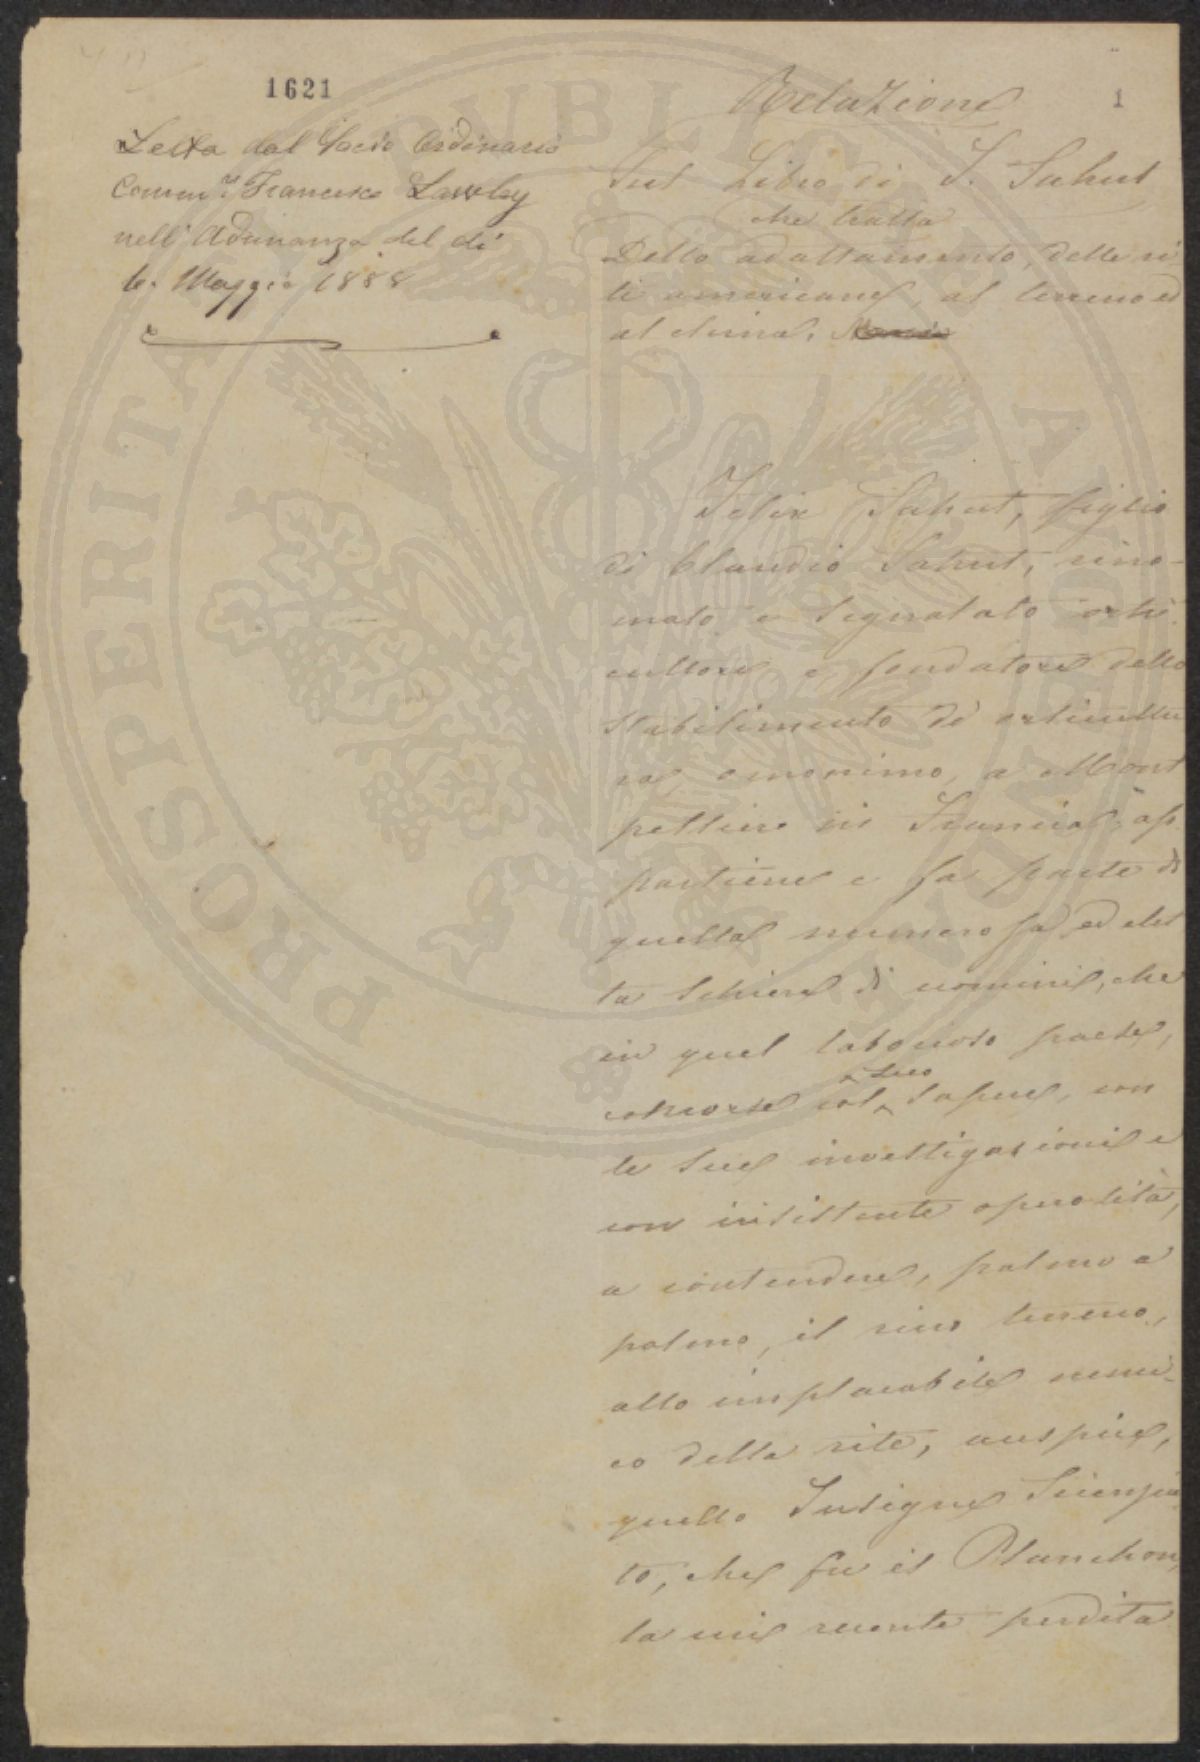 1621
1
Letta dal Socio Ordinario
Comm.r Francesco Lawley
nell' Adunanza del dì
6. Maggio 1888
Relazione
Sul Libro di F. Sahut
che tratta
Dello adattamento, delle vi
ti americane, al terreno ed
al clima.
Felix Sahut, figlio
di Claudio Sahut, rino-
mato e segnalato orti
cultore e fondatore dello
Stabilimento di orticultu
ra, omonimo, a Mont
pellier in Francia, ap
partiene e fa parte di
quella numerosa ed elet
ta schiera di uomini, che
in quel laborioso paese,
concorse col suo sapere, con
le sue investigazioni e
con insistente operosità,
a contendere, palmo a
palmo, il vino terreno,
allo implacabile nemi-
co della vite, auspice,
quello Insigne Scienzia
to, che fu il Planchon,
la cui recente perdita
PROSPERITATI PUBLICAE AUGENDAE